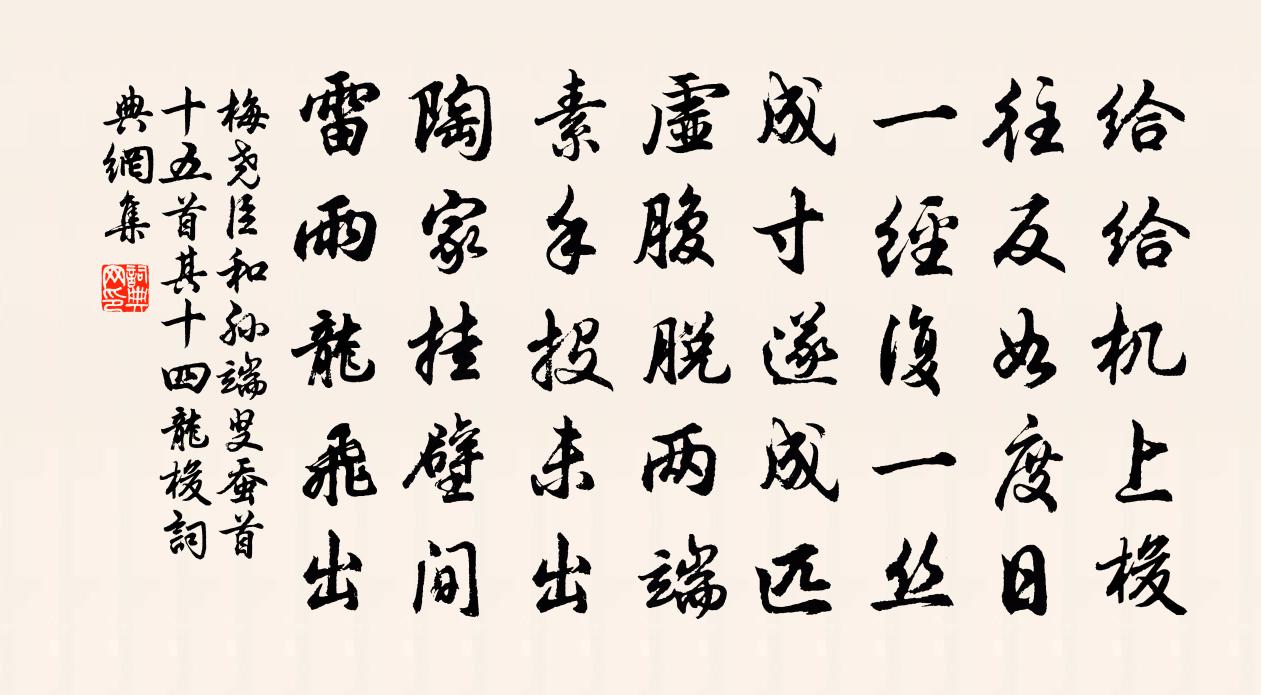 给给机上梭
往反如度日
一經復一丝
成寸遂成匹
虛腹脱两端
素手投未出
陶家挂壁间
雷雨龍飛出
梅尧臣和孙端叟蚕首
十五首其十四龍梭詞
典網集
詞典网印